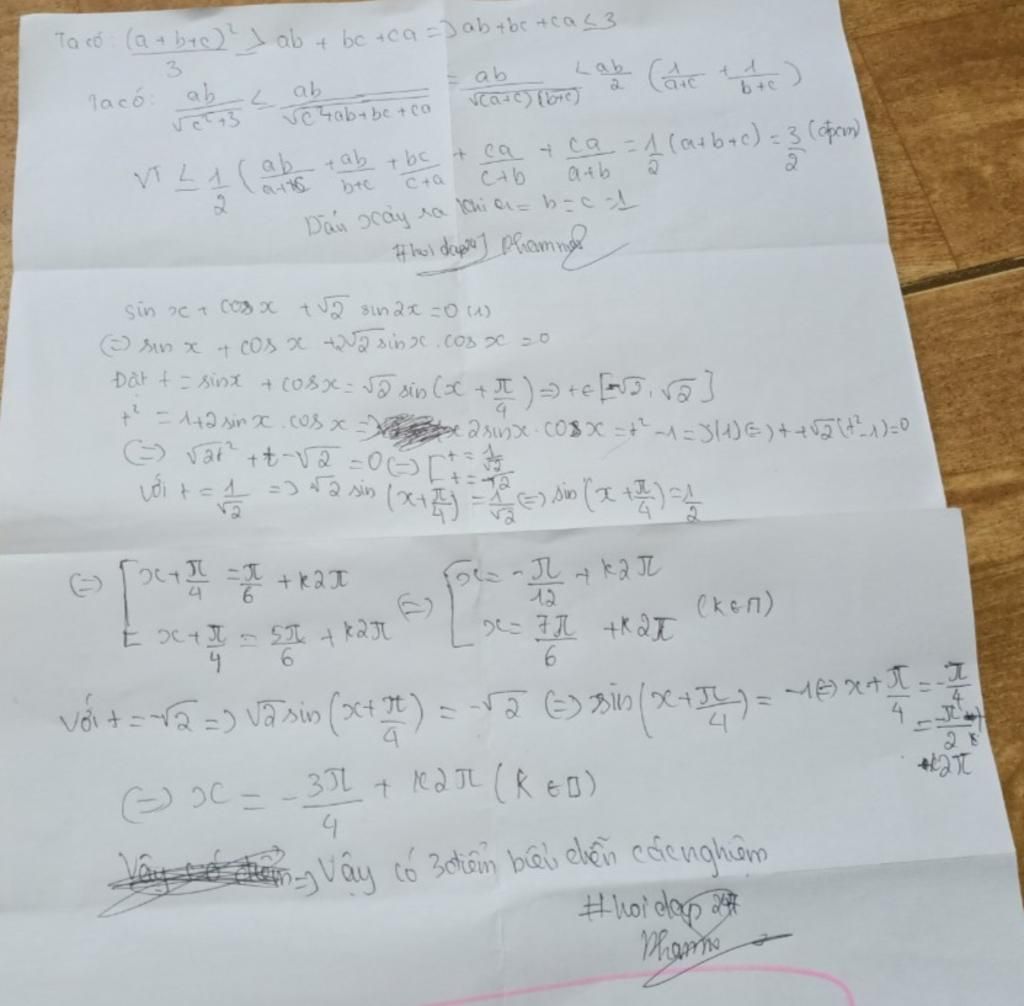 Ta có: (a+b+c)²/3 ≥ ab + bc + ca => ab + bc + ca ≤ 3
Ta có: ab/√(c²+3) ≤ ab/√(c²+ab+bc+ca) = ab/√((a+c)(b+c)) ≤ ab/2 (1/(a+c) + 1/(b+c))
VT ≤ 1/2 (ab/(a+c) + ab/(b+c) + bc/(c+a) + ca/(c+b) + ca/(a+b) = 1/2 (a+b+c) = 3/2 (đpcm)
Dấu xảy ra khi a = b = c = 1
#hoidap247
sin x + cos x + √2 sin 2x = 0 (1)
(=) sin x + cos x + 2√2 sin x . cos x = 0
Đặt t = sin x + cos x = √2 sin(x + π/4) => t ∈ [-√2, √2]
t² = 1 + 2 sin x . cos x => 2 sin x . cos x = t² - 1 => (1) (=) t + √2 (t² - 1) = 0
(=) √2t² + t - √2 = 0 (=) [ t = 1/√2 ; t = -√2
Với t = 1/√2 => √2 sin (x + π/4) = 1/√2 (=) sin (x + π/4) = 1/2
(=) [ x + π/4 = π/6 + k2π (=) [ x = -π/12 + k2π
x + π/4 = 5π/6 + k2π x = 7π/6 + k2π (k ∈ Π)
Với t = -√2 => √2 sin(x + π/4) = -√2 (=) sin(x + π/4) = -1 (=) x + π/4 = -π/4
= -π/2
+k2π
(=) x = -3π/4 + k2π (k ∈ □)
=> Vậy có 3 điểm biểu diễn các nghiệm
#hoidap247